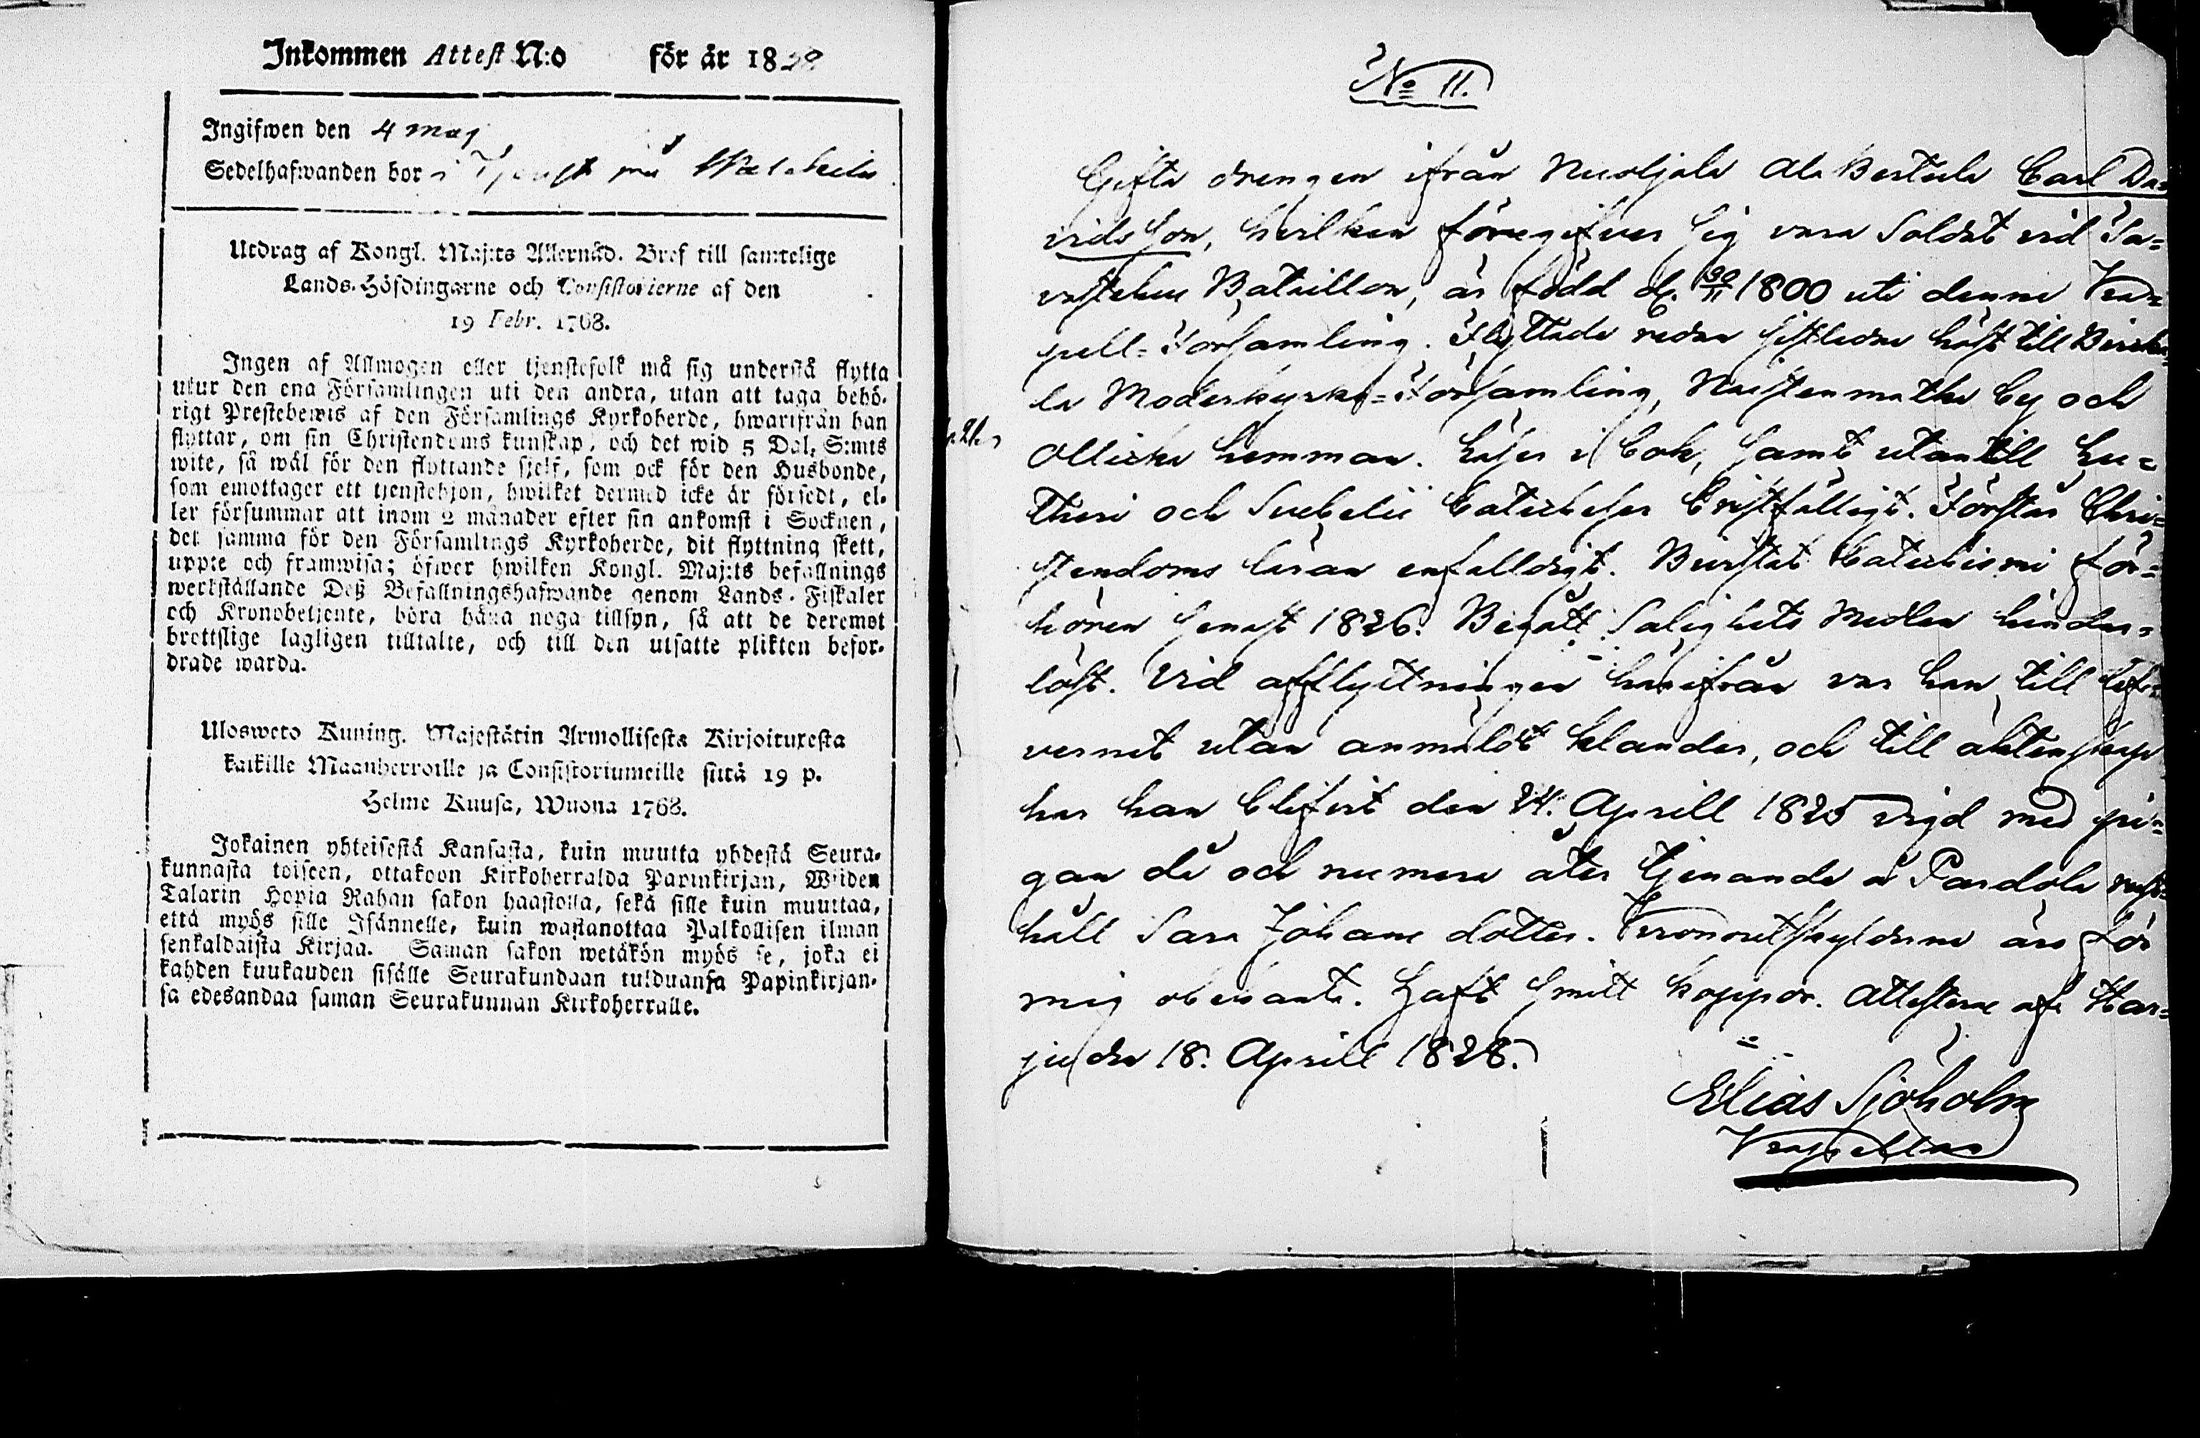 Inkommen Attest N:o för år 1828
Ingifwen den 4 maj
Sedelhafwanden bor i Tjenst på
Utdrag af Kongl. Maj:ts Allernåd. Bref till samtelige
Lands-Höfdingarne och Consistorierne af den
19 Febr. 1768.
Ingen af Allmogen eller tjenstefolk må sig understå flytta
utur den ena Församlingen uti den andra, utan att taga behö-
rigt Prestebewis af den Församlings Kyrkoherde, hwarifrån han
flyttar, om sin Christendoms kunskap, och det wid 5 Dal. S:mts
wite, så wäl för den flyttande sjelf, som ock för den Husbonde,
som emottager ett tjenstehjon, hwilket dermed icke är försedt, el-
ler försummar att inom 2 månader efter sin ankomst i Socknen,
det samma för den Församlings Kyrkoherde, dit flyttning skett,
uppte och framwisa; öfwer hwilken Kongl. Maj:ts befallnings
werkställande Deß Befallningshafwande genom Lands-Fiskaler
och Kronobetjente, böra hafwa noga tillsyn, så att de deremot
brottslige lagligen tilltalte, och till den utsatte plikten befor-
drade warda.
Ulosweto Kuning. Majestätin Armollisesta Kirjoituxesta
kaikille Maanherroille ja Consistoriumeille siitä 19 p.
Helme Kuusa, Wuona 1768.
Jokainen yhteisestä Kansasta, kuin muutta yhdestä Seura-
kunnasta toiseen, ottakoon Kirkoherralda Papinkirjan, Wiiden
Talarin Hopia Rahan sakon haastolla, sekä sille kuin muuttaa,
että myös sille Isännelle, kuin wastanottaa Palkollisen ilman
senkaldaista Kirjaa. Saman sakon wetäkön myös se, joka ei
kahden kuukauden sisälle Seurakundaan tulduansa Papinkirjan-
sa edesandaa saman Seurakunnan Kirkoherralle.
No 11.
Gifta drengen ifrån Nuoljala Ala Bertula Carl Da=
vidsson, hvilken föregifver sig vara Soldat vid Ta=
vastehus Bataillon, är född d. 30/11 1800 uti denne Ka=
pell=Församling. Flyttade redan sistledne höst till Birka=
la Moderkyrko=Församling, Naistenmatka by och
Ollicka hemman. Läser i bok, samt utantill Lu=
theri och Svebelii Catecheser bristfälligt. Förstår Chri=
stendoms läran enfalldigt. Bivistat Catechismi för=
hören senast 1826. Begått Salighets Medlen hinder=
löst. Vid afflyttningen härifrån var han till lef=
vernet utan anmäldt klander, och till äktenskap
har han blifvit den 24. Aprill 1825 vigd med pi=
gan då och numera åter tjenande å Pardola rust=
håll Sara Johans dotter. Kronoutskylderne äro för
mig obekante. Haft Smitt koppor. Attesterar af Har=
ju den 18. Aprill 1828.
Elias Sjöholm
Kapellan